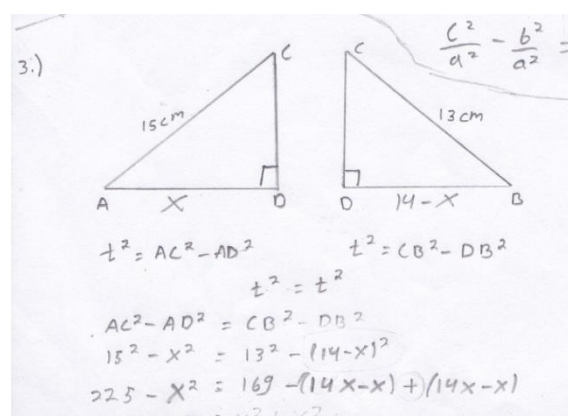 c²/a² - b²/a² =
3.)
C C
15cm 13cm
A x D D 14-x B
t² = AC² - AD² t² = CB² - DB²
t² = t²
AC² - AD² = CB² - DB²
15² - x² = 13² - (14-x)²
225 - x² = 169 - (14x-x) + (14x-x)